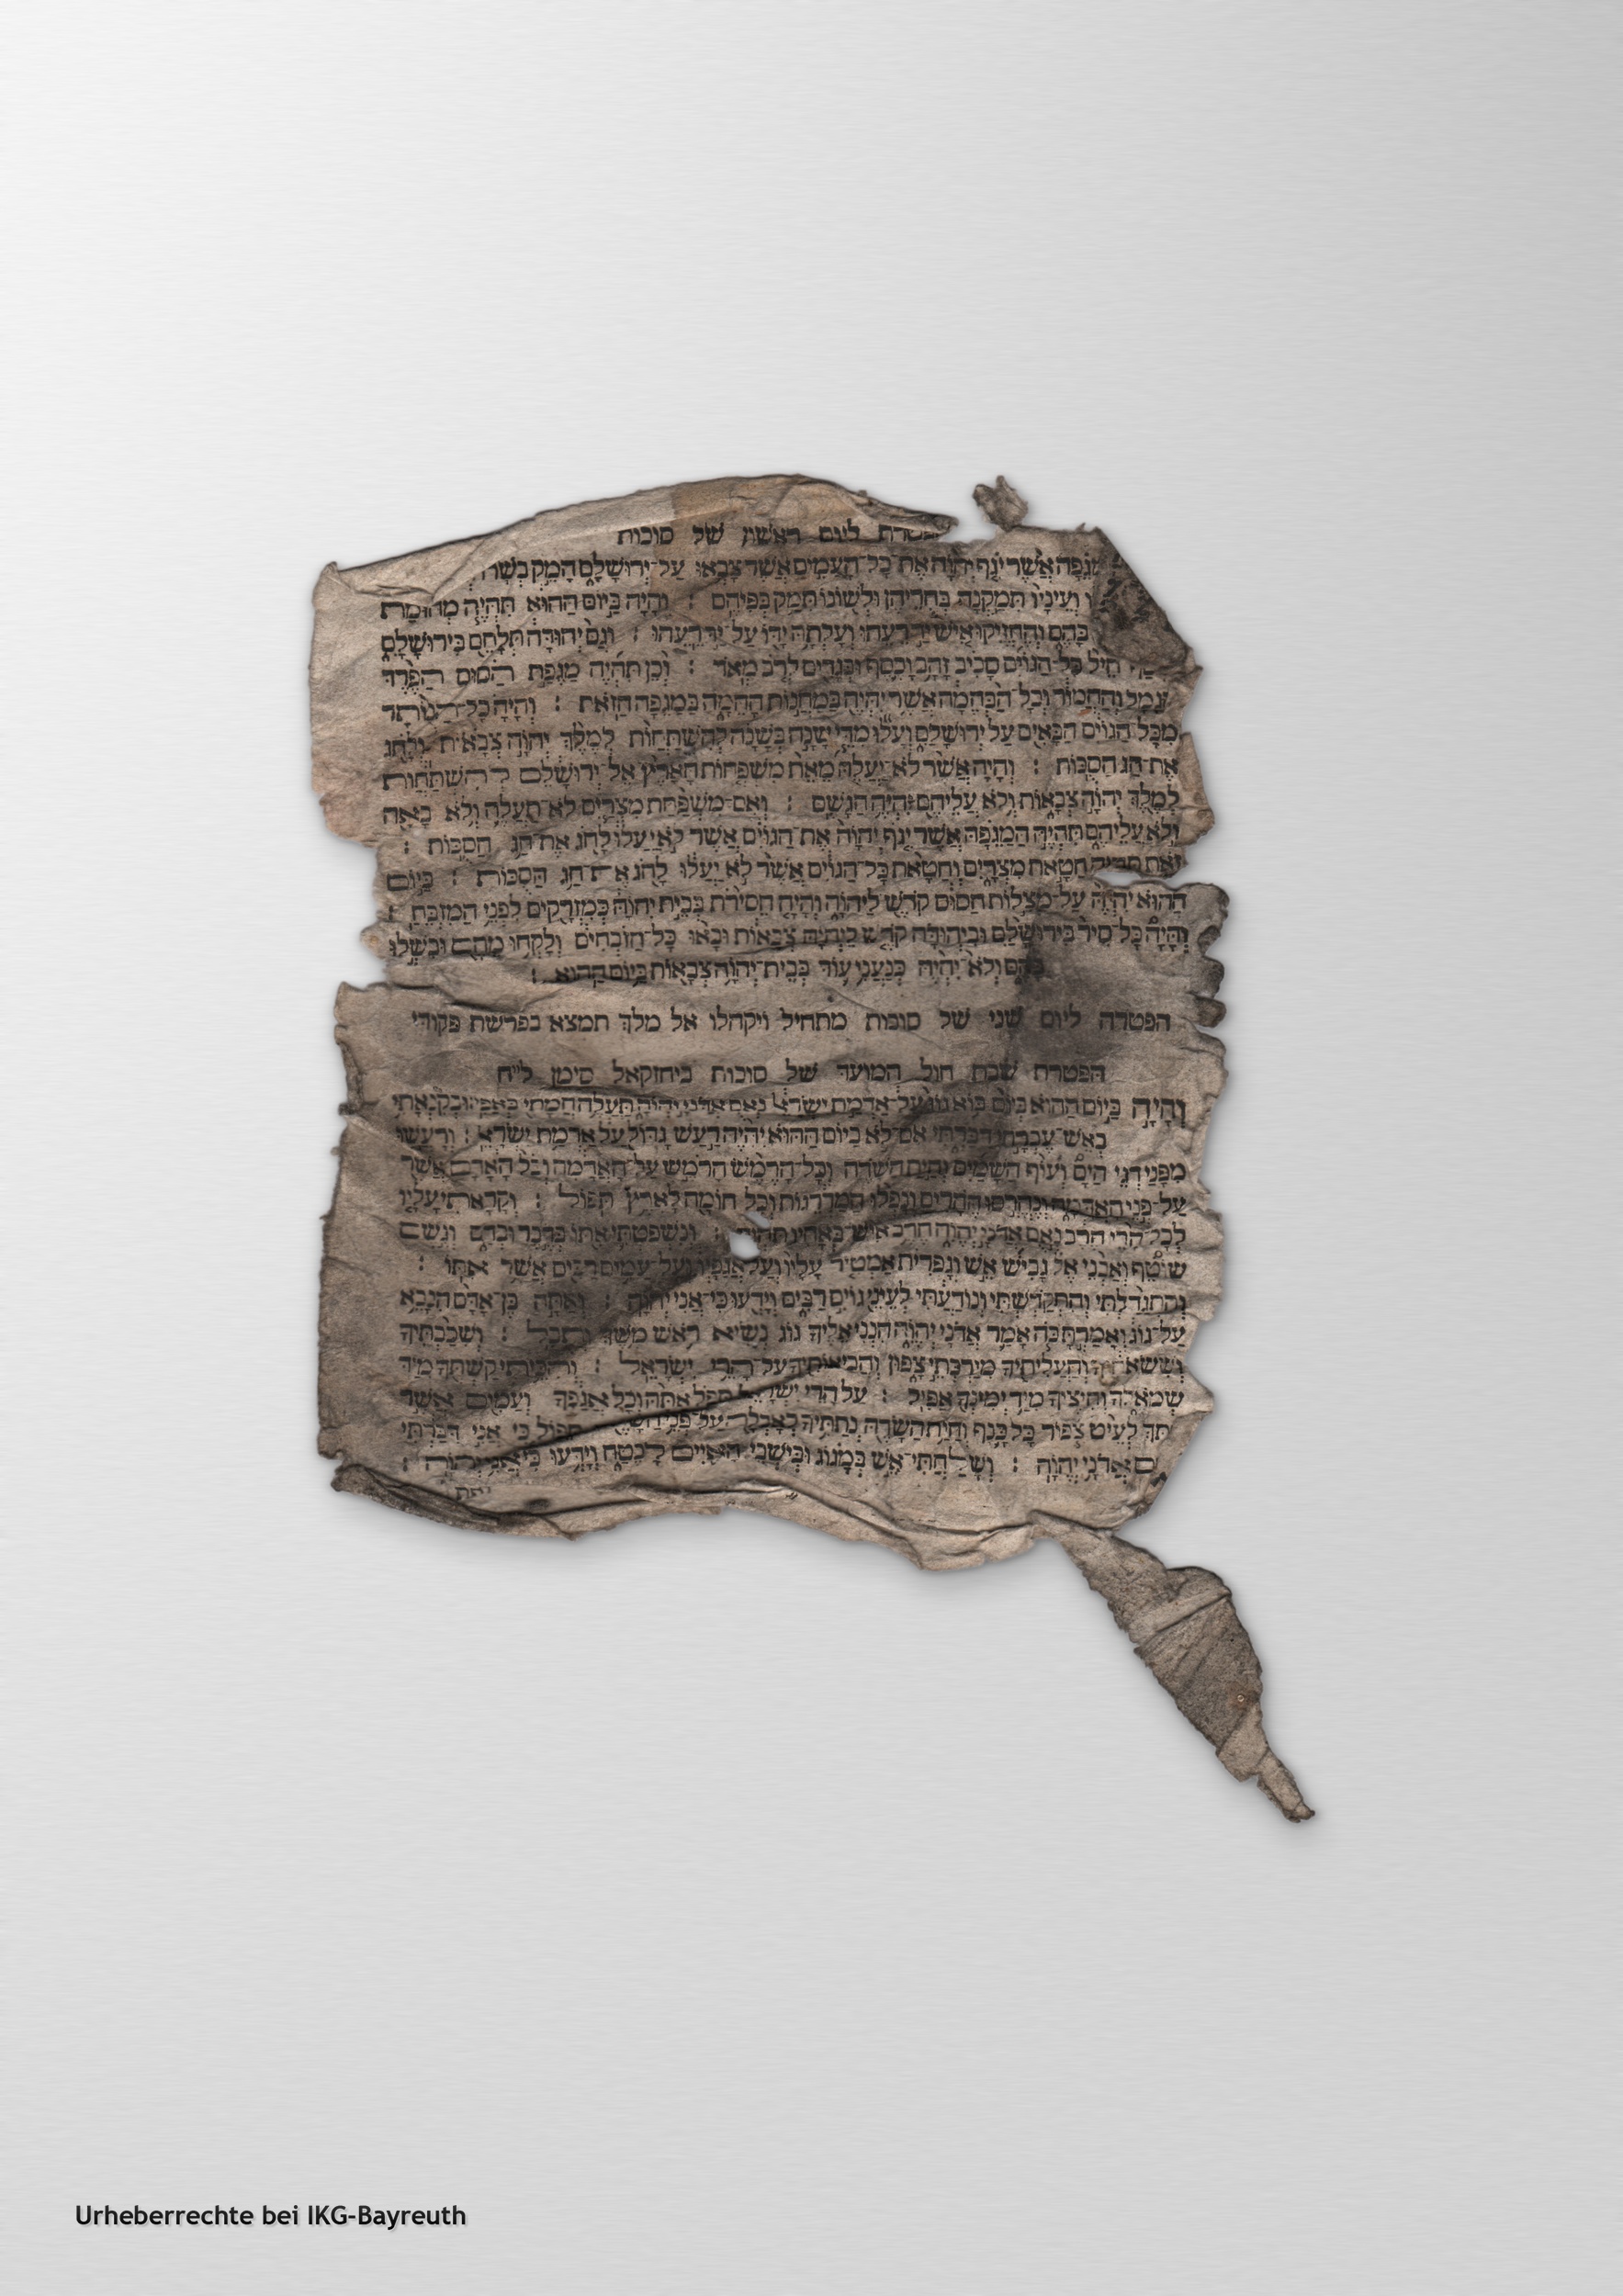 הפטרת ליום ראשון של סוכות
המגפה אשר יגף יהוה את כל־העמים אשר צבאו על־ירושלם המק בשרו
ועיניו תמקנה בחריהן ולשונו תמק בפיהם : והיה ביום ההוא תהיה מהומת
בהם והחזיקו איש יד רעהו ועלתה ידו על־יד רעהו : וגם יהודה תלחם בירושלם
חיל כל־הגוים סביב זהב וכסף ובגדים לרב מאד : וכן תהיה מגפת הסוס הפרד
הגמל והחמור וכל־הבהמה אשר יהיה במחנות ההמה כמגפה הזאת : והיה כל־הנותר
מכל הגוים הבאים על ירושלם ועלו מדי שנה בשנה להשתחות למלך יהוה צבאות ולחג
את־חג הסכות : והיה אשר לא־יעלה מאת משפחות הארץ אל־ירושלם להשתחות
למלך יהוה צבאות ולא עליהם יהיה הגשם : ואם־משפחת מצרים לא־תעלה ולא באה
ולא עליהם תהיה המגפה אשר יגף יהוה את הגוים אשר לא יעלו לחג את־חג הסכות :
זאת תהיה חטאת מצרים וחטאת כל־הגוים אשר לא יעלו לחג את־חג הסכות : ביום
ההוא יהיה על־מצלות הסוס קדש ליהוה והיה הסירת בבית יהוה כמזרקים לפני המזבח :
והיה כל־סיר בירושלם וביהודה קדש ליהוה צבאות ובאו כל־הזובחים ולקחו מהם ובשלו
בהם ולא־יהיה כנעני עוד בבית־יהוה צבאות ביום ההוא :
הפטרה ליום שני של סוכות מתחיל ויקהלו אל מלך תמצא בפרשת פקודי
הפטרת שבת חול המועד של סוכות ביחזקאל סימן ל״ח
והיה ביום ההוא ביום בוא גוג על־אדמת ישראל נאם אדני יהוה תעלה חמתי באפי : ובקנאתי
באש־עברתי דברתי אם־לא ביום ההוא יהיה רעש גדול על אדמת ישראל : ורעשו
מפני דגי הים ועוף השמים וחית השדה וכל־הרמש הרמש על־האדמה וכל האדם אשר
על־פני האדמה ונהרסו ההרים ונפלו המדרגות וכל חומה לארץ תפול : וקראתי עליו
לכל־הרי חרב נאם אדני יהוה חרב איש באחיו תהיה : ונשפטתי אתו בדבר ובדם וגשם
שוטף ואבני אלגביש אש וגפרית אמטיר עליו ועל־אגפיו ועל־עמים רבים אשר אתו :
והתגדלתי והתקדשתי ונודעתי לעיני גוים רבים וידעו כי־אני יהוה : ואתה בן־אדם הנבא
על־גוג ואמרת כה אמר אדני יהוה הנני אליך גוג נשיא ראש משך ותבל : ושבבתיך
וששאתיך והעליתיך מירכתי צפון והביאותיך על־הרי ישראל : והכיתי קשתך מיד
שמאלך וחיציך מיד ימינך אפיל : על הרי ישראל תפל אתה וכל אגפך ועמים אשר
אתך לעיט צפור כל כנף וחית השדה נתתיך לאכלה : על־פני השדה תפול כי אני דברתי
נאם אדני יהוה : ושלחתי־אש במגוג ובישבי האיים לבטח וידעו כי אני יהוה :
Urheberrechte bei IKG-Bayreuth